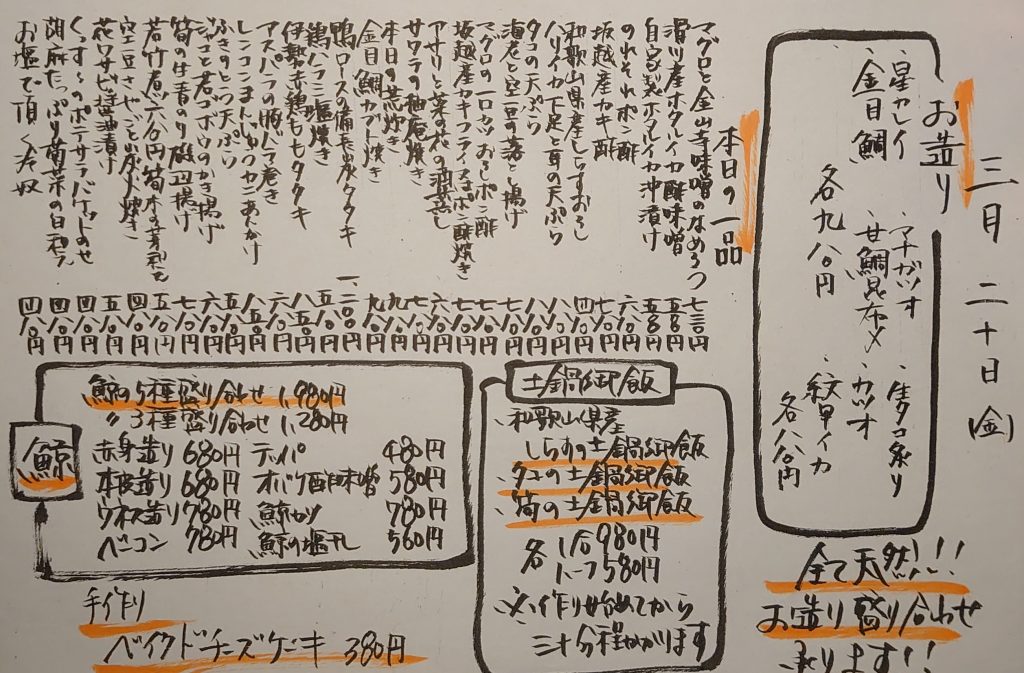 三月二十日(金)
お造り
・星ガレイ ・マナガツオ ・生タコ炙り
・金目鯛 ・甘鯛昆布〆 ・カツオ ・紋甲イカ
各九八〇円 各八八〇円
全て天然!!!
お造り盛り合わせ
承ります!!
本日の一品
マグロと金山寺味噌のなめろう 七三〇円
滑川産ホタルイカ酢味噌 五八〇円
自家製ホタルイカ沖漬け 五八〇円
のれそれポン酢 六八〇円
坂越産カキ酢 七八〇円
和歌山県産しらすおろし 四八〇円
ハリイカ下足と耳の天ぷら 八八〇円
タコの天ぷら 八八〇円
海老と空豆の落とし揚げ 七八〇円
マグロの一口カツおろしポン酢 七八〇円
坂越産カキフライ
アサリと菜の花の酒蒸し
サワラの柚庵焼き
本日の荒炊き
金目鯛カブト焼き
鴨ロースの備長炭タタキ 一、二八〇円
鶏ハラミ塩焼き
伊勢赤鶏ももタタキ
アスパラの豚バラ巻き
レンコンまんじゅうカニあんかけ
ふきのとう天ぷら
ジャコと若ゴボウのかき揚げ
筍の生青のり磯辺揚げ
若竹煮
空豆さやごと炭火焼き
花ワサビ醤油漬け
くずし
胡麻たっぷり菊菜の白和え 四八〇円
お塩で頂く冷奴 四八〇円
土鍋御飯
・和歌山県産
しらすの土鍋御飯
・タコの土鍋御飯
・筍の土鍋御飯
各 1合980円
ハーフ580円
※作り始めてから
三十分程かかります
鯨
鯨の5種盛り合わせ 1,980円
〃 3種盛り合わせ 1,280円
赤身造り 680円 テッパ 480円
本皮造り 680円 オバケ酢味噌 580円
ウネス造り 780円 鯨カツ 780円
ベーコン 780円 鯨の塩干し 560円
手作り
ベイクドチーズケーキ 380円